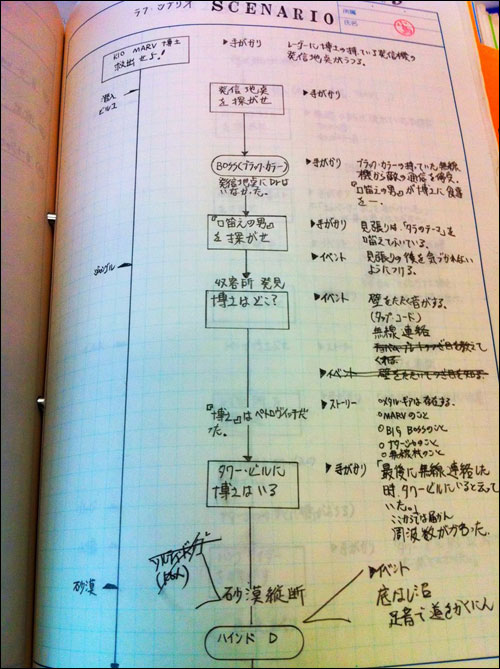 ラフ・シナリオ SCENARIO
所属
氏名
KIO MARV 博士
救出せよ!
▶手がかり レーダーに博士の持っている発信機の
発信地点がうつる。
潜入
ビル2
発信地点
を探がせ
▶手がかり
BOSS(ブラック・カラー)
発信地点にDr.は
いなかった。
▶手がかり ブラック・カラーの持っていた無線
機から敵の通信を傍受。
『口笛えの男』が博士に食事
を一。
『口笛えの男』
を探がせ
▶手がかり 見張りは、「タラのテーマ」を
口笛えでふいている。
▶イベント 見張りの後を気づかれない
ようにつける。
ジャングル
収容所 発見
博士はどこ?
▶イベント 壁をたたく音がする。
(タップ・コード)
無線連絡
くれる
▶イベント
『博士』はペトロヴィッチだっ
た。
▶ストーリー ○メタル・ギアは存在する。
○MARVのこと
○BIG BOSSのこと
○ナターシャのこと
○無線機のこと
タワー・ビルに
博士はいる
▶手がかり 「最後に無線連絡した
時タワー・ビルにいると云って
いた。」
ここからでは届かん
周波数がかわった。
砂漠
砂漠縦断
▶イベント
底なし沼
足音で道をかくにん
ハインド D